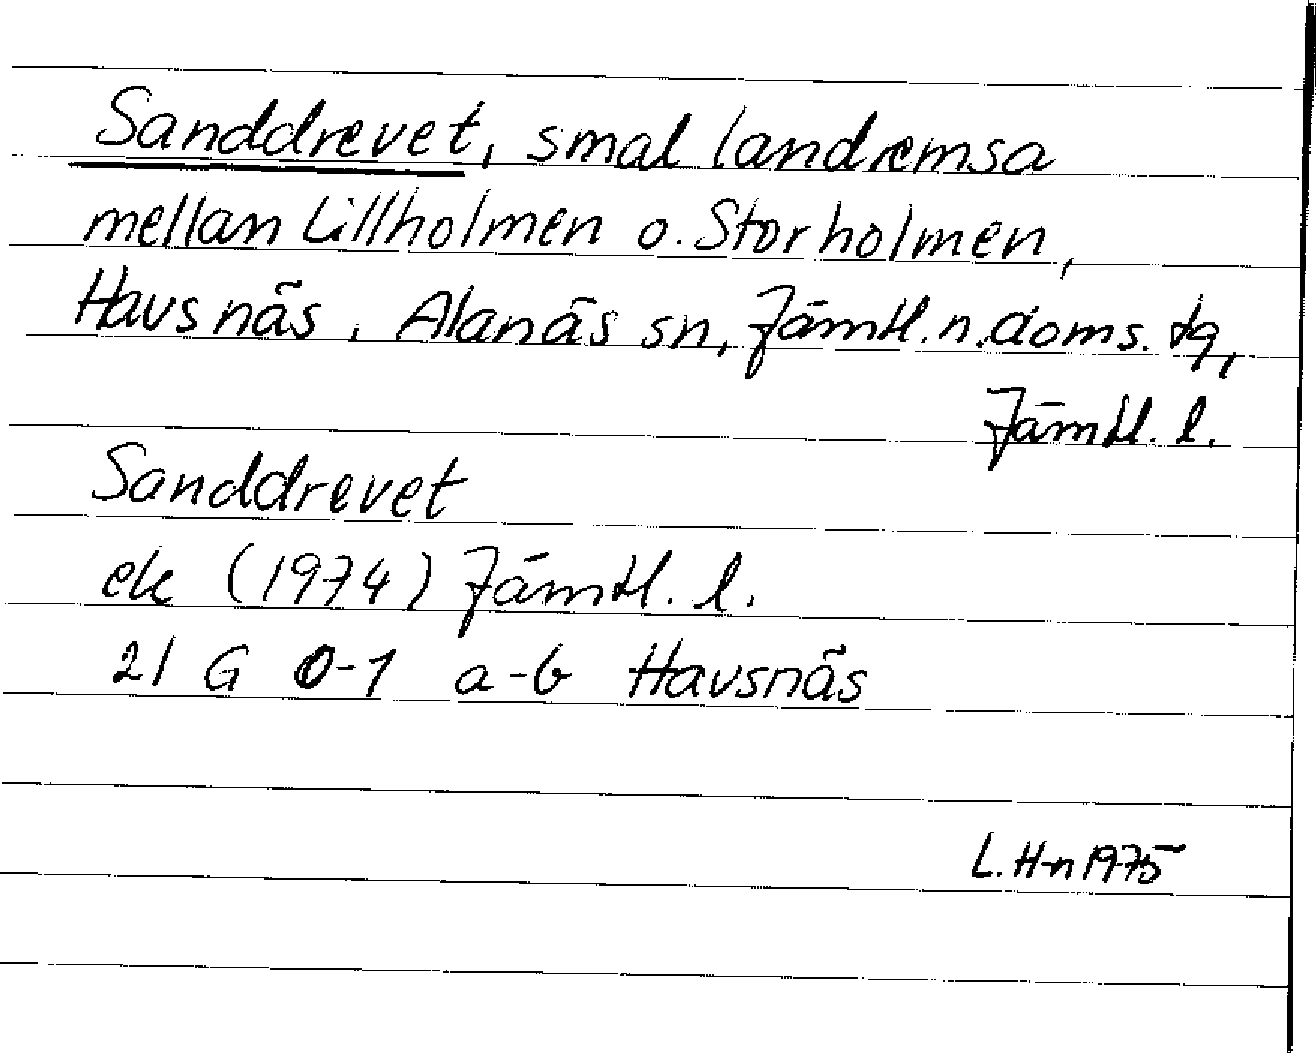 Sanddrevet, smal landremsa
mellan Lillholmen o. Storholmen,
Havsnäs, Alanäs sn, Jämtl. n. doms. tg,
Jämtl. l.
Sanddrevet
ek (1974) Jämtl. l.
21 G 0-1 a-b Havsnäs
L. H-n 1975